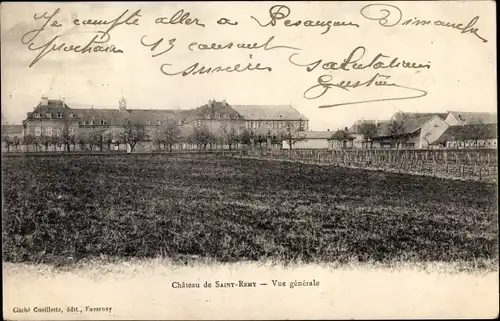 Je compte aller à Besançon Dimanche
prochain 13 courant
Salutations
sincères
Gustave
Château de SAINT-REMY — Vue générale
Cliché Cueillette, édit., Faverney